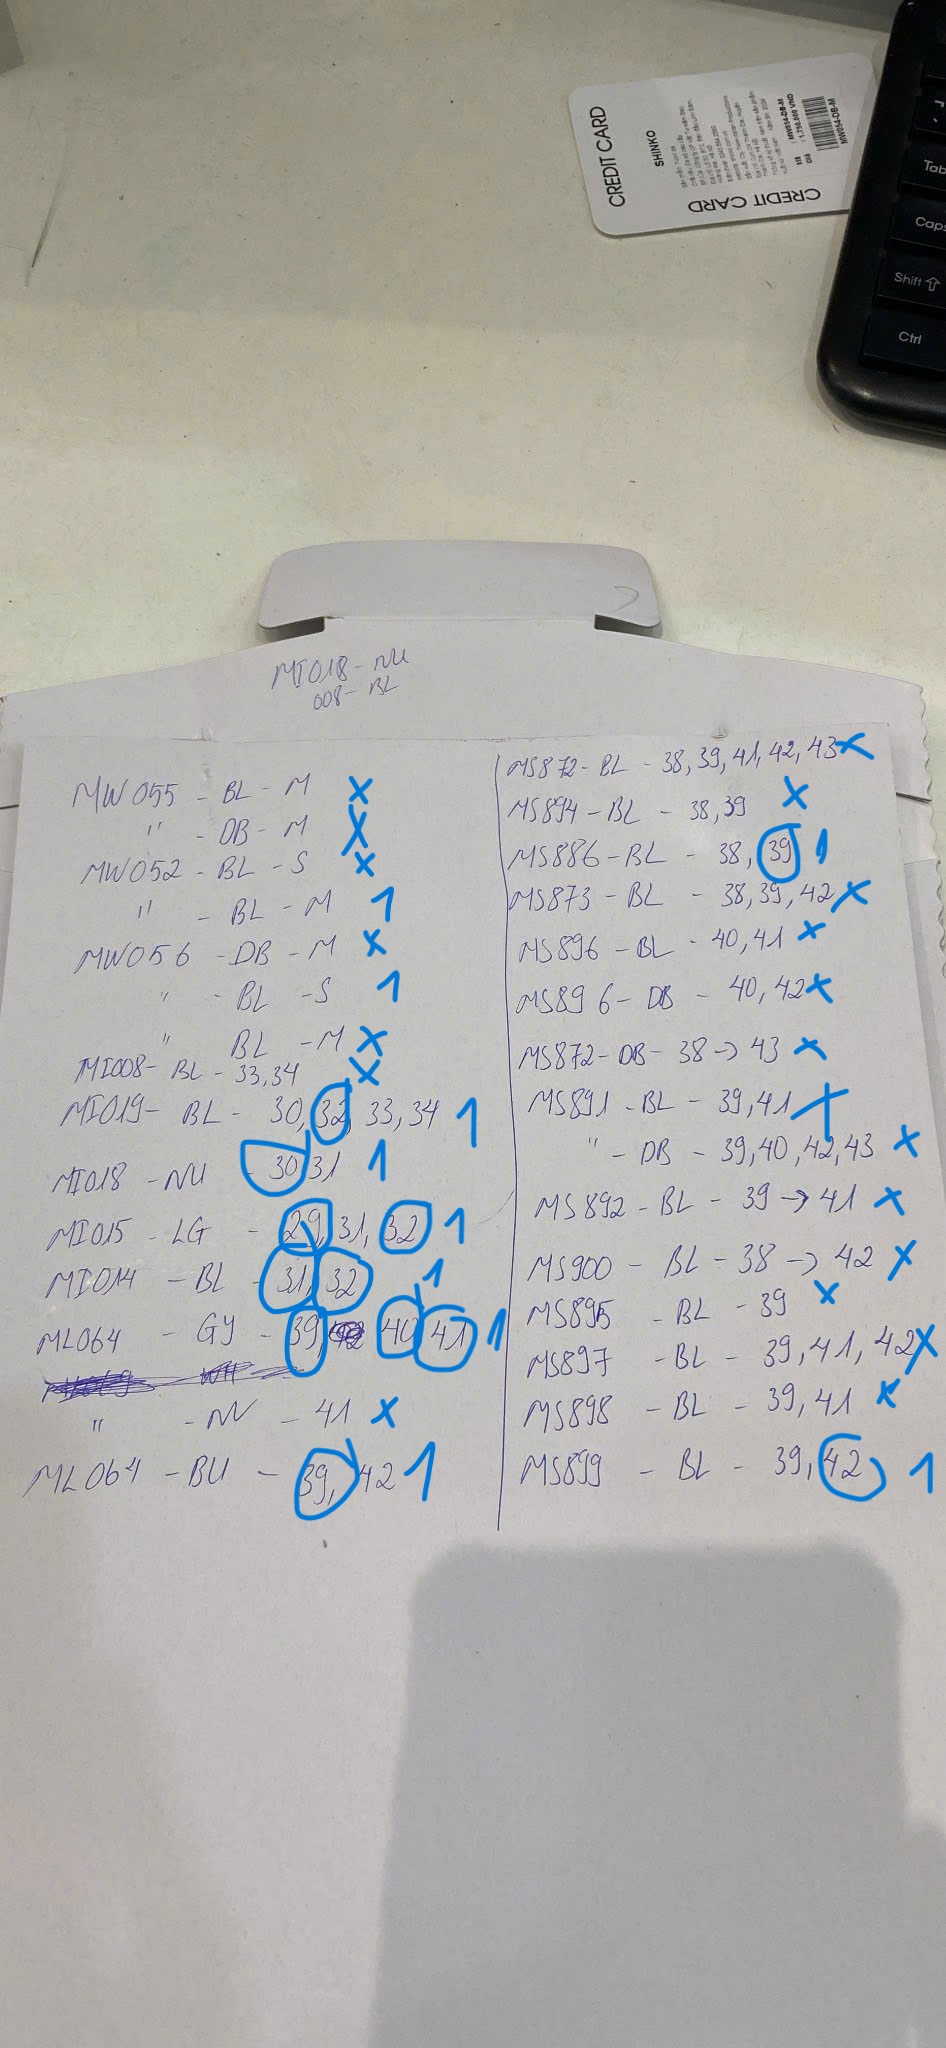 CREDIT CARD
SHINKO
MW054-DB-M
1.750.000 VND
MW054-DB-M
CREDIT CARD
Tab
Caps
Shift
Ctrl
MI018 - NU
008 - BL
MW055 - BL - M X
" - DB - M X
MW052 - BL - S X
" - BL - M 1
MW056 - DB - M X
" - BL - S 1
" BL - M X
MI008 - BL - 33,34 X
MI019 - BL - 30, 32, 33, 34 1
MI018 - NU - 30, 31 1
MI015 - LG - 29, 31, 32 1
MI014 - BL - 31, 32 1
ML064 - GY - 39, 40, 41 1
" - NU - 41 X
ML064 - BU - 39, 42 1
MS872 - BL - 38, 39, 41, 42, 43 X
MS894 - BL - 38, 39 X
MS886 - BL - 38, 39 1
MS873 - BL - 38, 39, 42 X
MS896 - BL - 40, 41 X
MS896 - DB - 40, 42 X
MS872 - DB - 38 → 43 X
MS891 - BL - 39, 41 X
" - DB - 39, 40, 42, 43 X
MS892 - BL - 39 → 41 X
MS900 - BL - 38 → 42 X
MS895 - BL - 39 X
MS897 - BL - 39, 41, 42 X
MS898 - BL - 39, 41 X
MS899 - BL - 39, 42 1